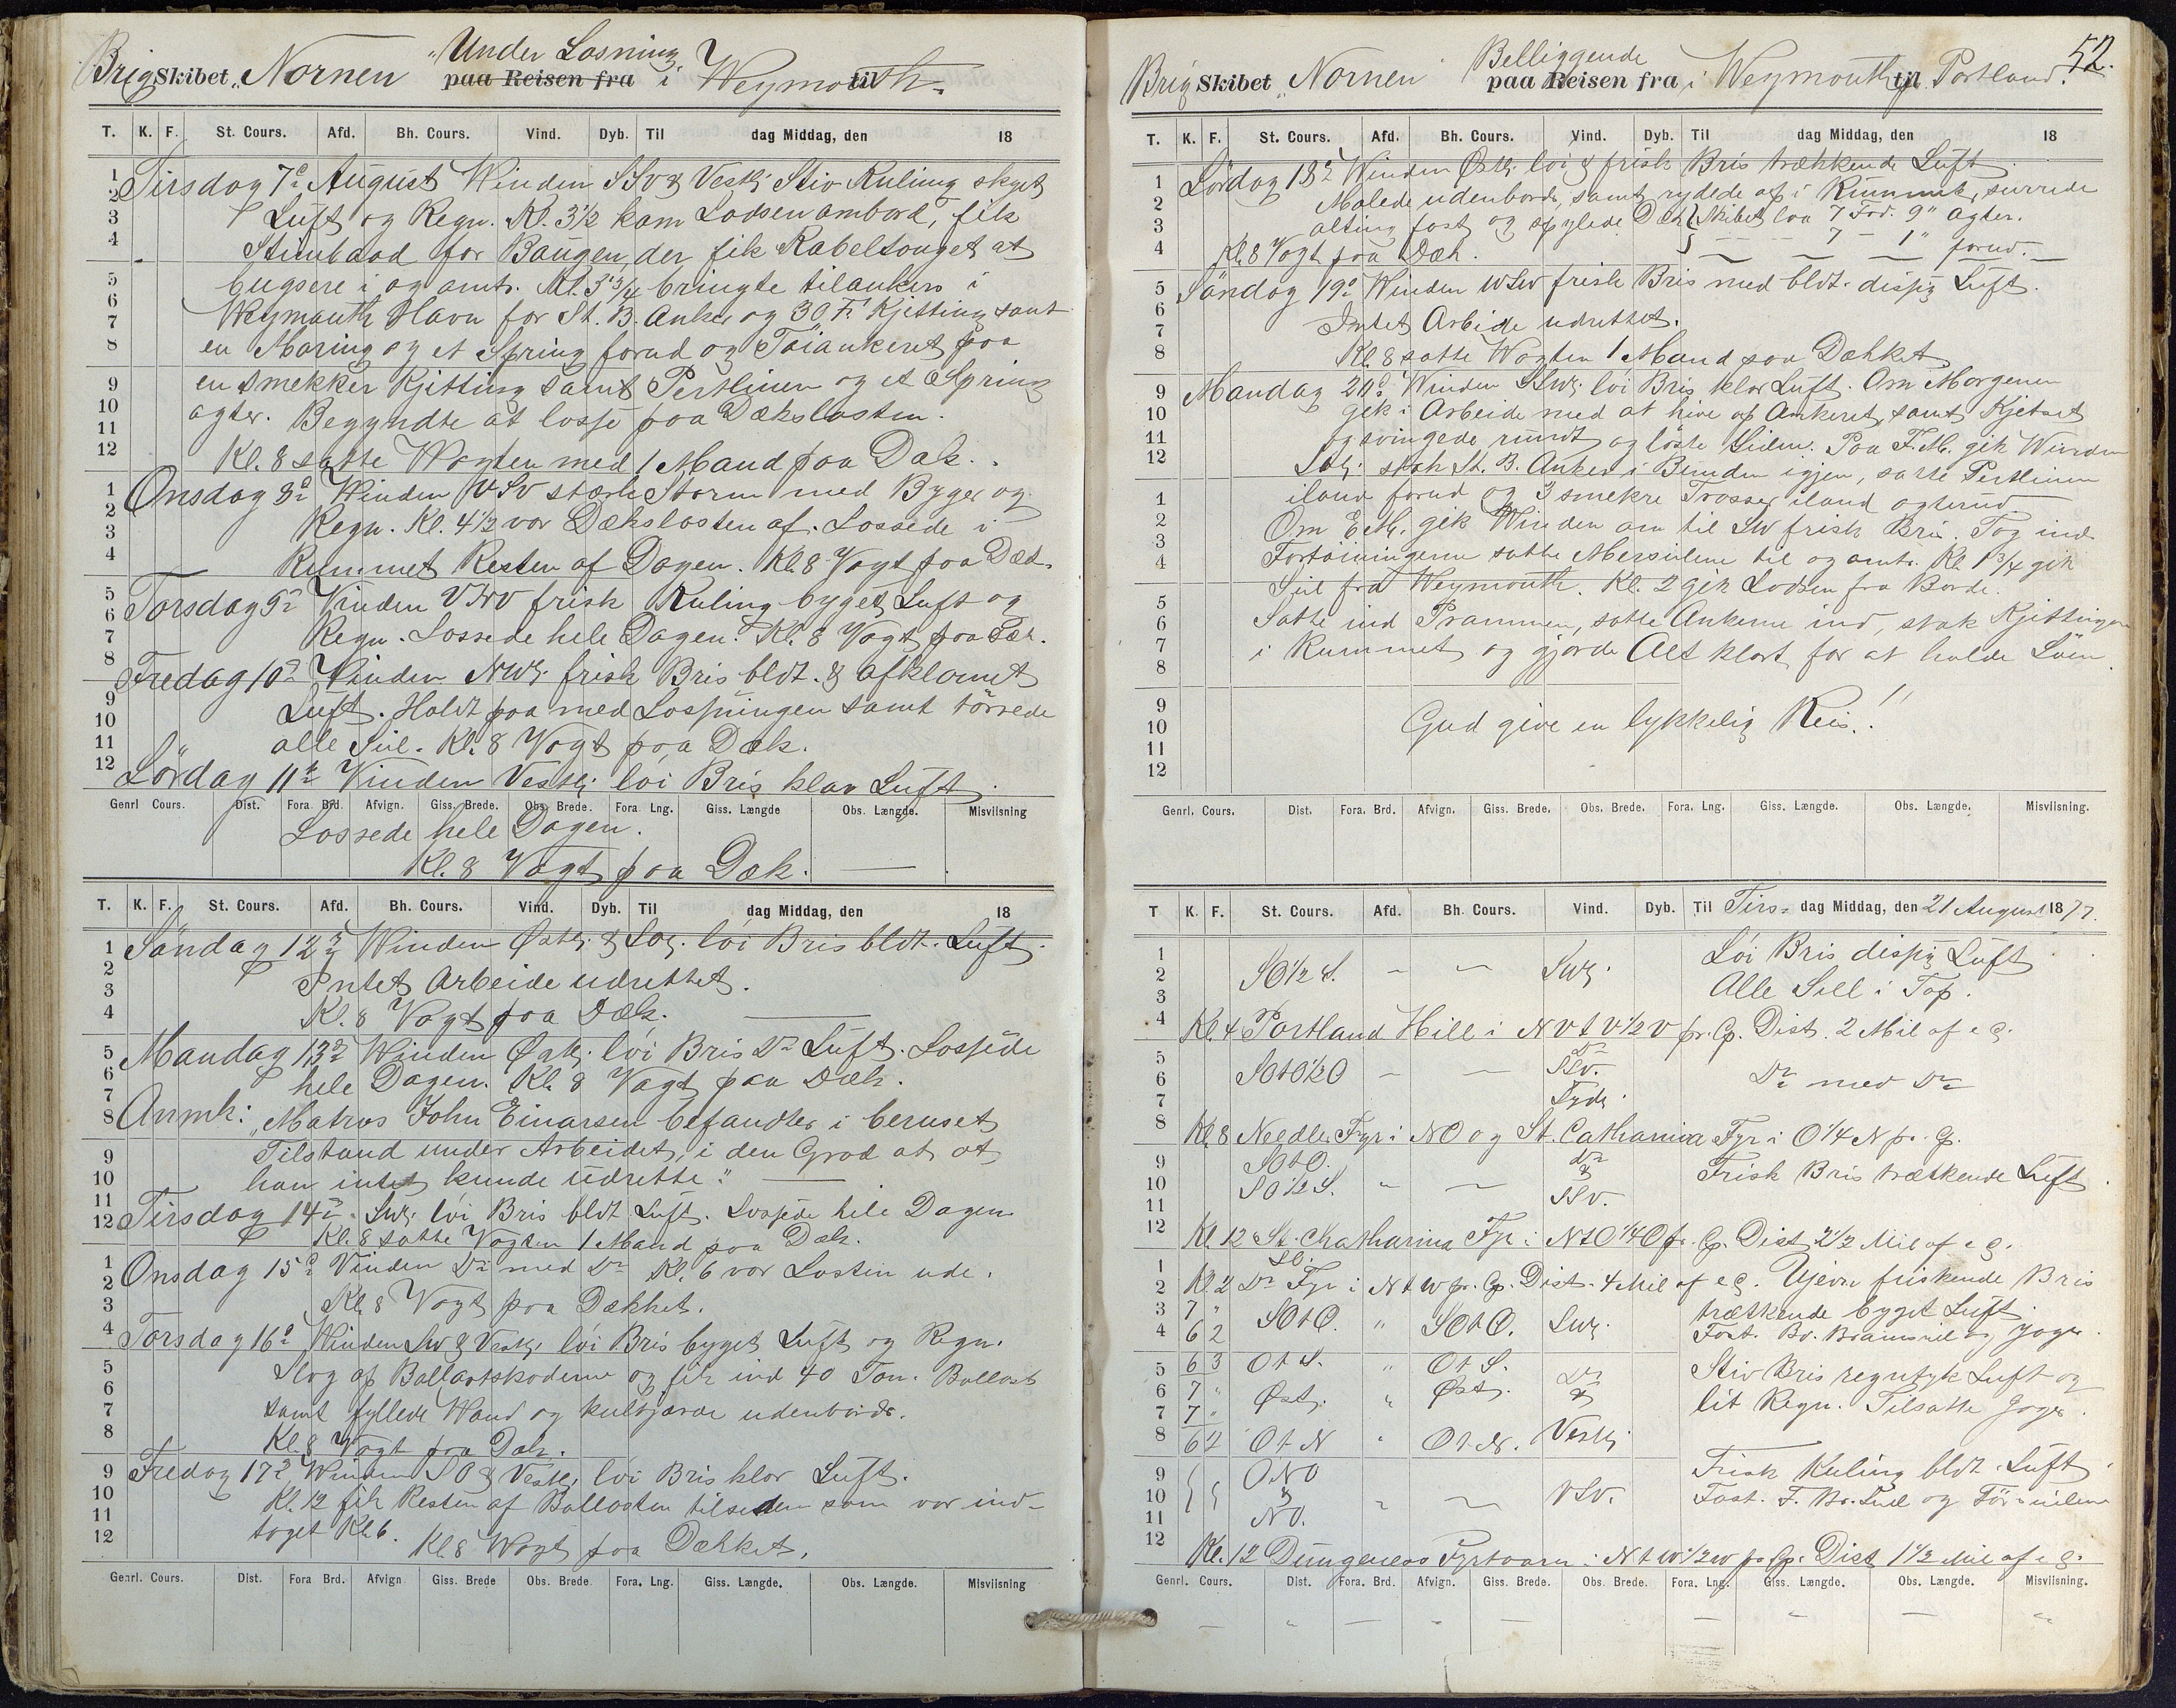 Brig Skibet "Nornen" Under Losning paa Reisen fra i Weymouth til
T. K. F. St. Cours. Afd. Bh. Cours. Vind. Dyb. Til dag Middag, den 18
Tirsdag 7de August Winden SSv & Vestl. Stiv Kuling skyet
Luft og Regn. Kl. 3½ kom Lodsen ambord, fik
Stimbaad for Baugen, der fik Kabeltouget at
bugsere i og amts. Kl. 3¾ bringte tilankers i
Weymouth Havn for St. B. Anker og 30 F. Kjetting samt
en Moring og et Spring forud og Töiankeret paa
en smekker Kjetting samt Pertlinen og et Spring
agter. Begyndte at losse paa Dækslasten.
Kl. 8 satte Wagten med 1 Mand paa Dæk.
Onsdag 8de Winden VSv stærk Storm med Byger og
Regn. Kl. 4½ var Dækslasten af. Lossede i
Rummet Resten af Dagen. Kl. 8 Vagt paa Dæk.
Torsdag 9de Vinden VNV frisk Kuling byget Luft og
Regn. Lossede hele Dagen. Kl. 8 Vagt paa Dæk.
Fredag 10de Winden NWl. frisk Bris bldt. & afklarnet
Luft. Holdt paa med Losningen samt törrede
alle Seil. Kl. 8 Vagt paa Dæk.
Lördag 11te Vinden Vestl. löi Bris klar Luft.
Genrl Cours. Dist. Fora Brd. Afvign. Giss. Brede. Obs. Brede. Fora Lng. Giss. Længde Obs. Længde. Misviisning
Lossede hele Dagen.
Kl. 8 Vagt paa Dæk.
T. K. F. St. Cours. Afd. Bh. Cours. Vind. Dyb. Til dag Middag, den 18
Söndag 12te Winden Østl. & SOl. löi Bris bldt. Luft.
Intet Arbeide udrettet.
Kl. 8 Vagt paa Dæk.
Mandag 13de Winden Østl. löi Bris Do Luft. Lossede
hele Dagen. Kl. 8 Vagt paa Dæk.
Anmk: "Matros John Einarsen befandtes i beruset
Tilstand under Arbeidet, i den Grad at at
han intet kunde udrette."
Tirsdag 14de Swl. löi Bris bldt Luft. Lossede hele Dagen
Kl. 8 satte Vagten 1 Mand paa Dæk.
Onsdag 15de Vinden Do med Do Kl. 6 var Lasten ude.
Kl. 8 Vagt paa Dækket.
Torsdag 16de Winden Sw & Vestl. löi Bris byget Luft og Regn.
Slog af Ballastskoderne og fik ind 40 Ton. Ballast
samt fyllede Wand og kultjærede udenbords.
Kl. 8 Vagt paa Dæk.
Fredag 17de Winden SO & Vestl. löi Bris klar Luft.
Kl. 12 fik Resten af Ballasten tilseden som var ind-
taget Kl. 6. Kl. 8 Wagt paa Dækket.
Genrl. Cours. Dist. Fora Brd. Afvign Giss. Brede Obs. Brede Fora. Lng. Giss. Længde. Obs. Længde. Misviisning
52.
Brig Skibet "Nornen" Belliggende paa Reisen fra i Weymouth til Portland.
T. K. F. St. Cours. Afd. Bh. Cours. Vind. Dyb. Til dag Middag, den 18
Lördag 18de Winden Østl. löi & frisk Bris trækkende Luft
Malede udenbords, samt rydde af i Rummet, surrede
alting fast og spylede Dæk. Skibet laa 7 Fod. 9" agter.
Kl. 8 Vagt paa Dæk. 7 - 1" forud.
Söndag 19de Winden WSW frisk Bris med bldt. disig Luft.
Intet Arbeide udrettet.
Kl. 8 satte Wagten 1 Mand paa Dækket
Mandag 20de Winden SSWl. löi Bris klar Luft. Om Morgenen
gik i Arbeide med at hive op Ankeret, samt Kjetset
og svingede rundt og löste Seilene. Paa F.M. gik Winden
SOl. stak St. B. Anker i Bunden igjen, satte Pertlinen
iland forud og 3 smekre Trosser iland agterud
Om E.M. gik Winden om til SW frisk Bris. Tog ind
Fortöiningerne satte Mersseilene til og amts. Kl. 1¾ gik
Seil fra Weymouth. Kl. 2 gik Lodsen fra Borde.
Satte ind Prammen, satte Ankerne ind, stak Kjettingen
i Rummet og gjorde Alt klart for at holde Söen.
Gud give en lykkelig Reis.!!
Genrl. Cours. Dist. Fora. Brd. Afvign. Giss. Brede. Obs. Brede. Fora. Lng. Giss. Længde. Obs. Længde. Misviisning
T K. F. St. Cours. Afd. Bh. Cours. Vind. Dyb. Til Tirs- dag Middag, den 21 August 1877.
SO½S. - - Swl. Löi Bris disig Luft
Alle Seil i Top.
Kl. 4 Portland Hill i NVtV½V pr. Cp. Dist. 2 Mil af e G.
SOtO½O - - SSv. Sydl. Do med Do
Kl. 8 Needles Fyr i NO og St. Catharina Fyr i O¼N pr. Cp.
SOtO. SO½S. - - Do & SSv. Frisk Bris trækkende Luft
Kl. 12 St. Chatharina Fyr i NtO¼O pr. Cp. Dist 2½ Mil af e G.
Kl. 2 Do Fyr i NtW pr. Cp. Dist. 4 Mil af e G. Ujevn friskende Bris
7 " SOtO. " SOtO. Swl. trækkende byget Luft.
6 2 Fast. Bv. Bramseil og Jager.
6 3 OtS. " OtS. Do Stiv Bris regntyk Luft og
7 " Østl. " Østl. & lit Regn. Tilsatte Jager.
7 "
6 4 OtN " OtN. Vestl.
ONO & NO. - - VSv. Frisk Kuling bldt. Luft
Fast. F. Br. Seil og Förseilene
Kl. 12 Dungeness Fyrtaarn i NtW½W pr. Cp. Dist 1½ Mil af e G.
Genrl. Cours. Dist. Fora. Brd. Afvign. Giss. Brede. Obs. Brede. Fora. Lng. Giss. Længde. Obs. Længde. Misviisning.